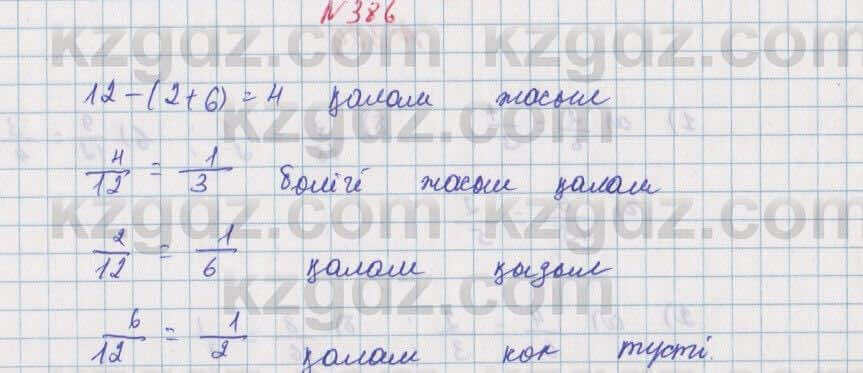 №386
12-(2+6)=4 қалам жасыл
4/12 = 1/3 бөлігі жасыл қалам
2/12 = 1/6 қалам қызыл
6/12 = 1/2 қалам көк түсті.
kzgdz.com kzgdz.com
kzgdz.com
kzgdz.com kzgdz.com
kzgdz.com